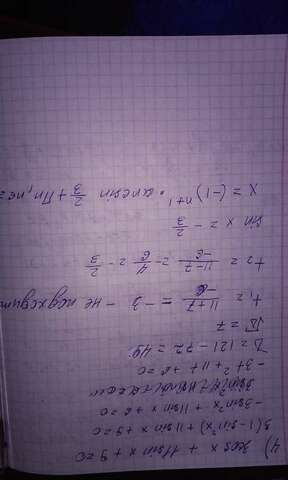 4) 3cos x + 11sin x + 9 = 0
3(1 - sin²x) + 11sin x + 9 = 0
-3sin²x + 11sin x + 6 = 0
-3t² + 11t + 6 = 0
D = 121 - 72 = 49
√D = 7
t₁ = 11+7/-6 = -3 - не подходит
t₂ = 11-7/-6 = -4/6 = -2/3
sin x = -2/3
x = (-1)ⁿ⁺¹ · arcsin 2/3 + Πn, n∈